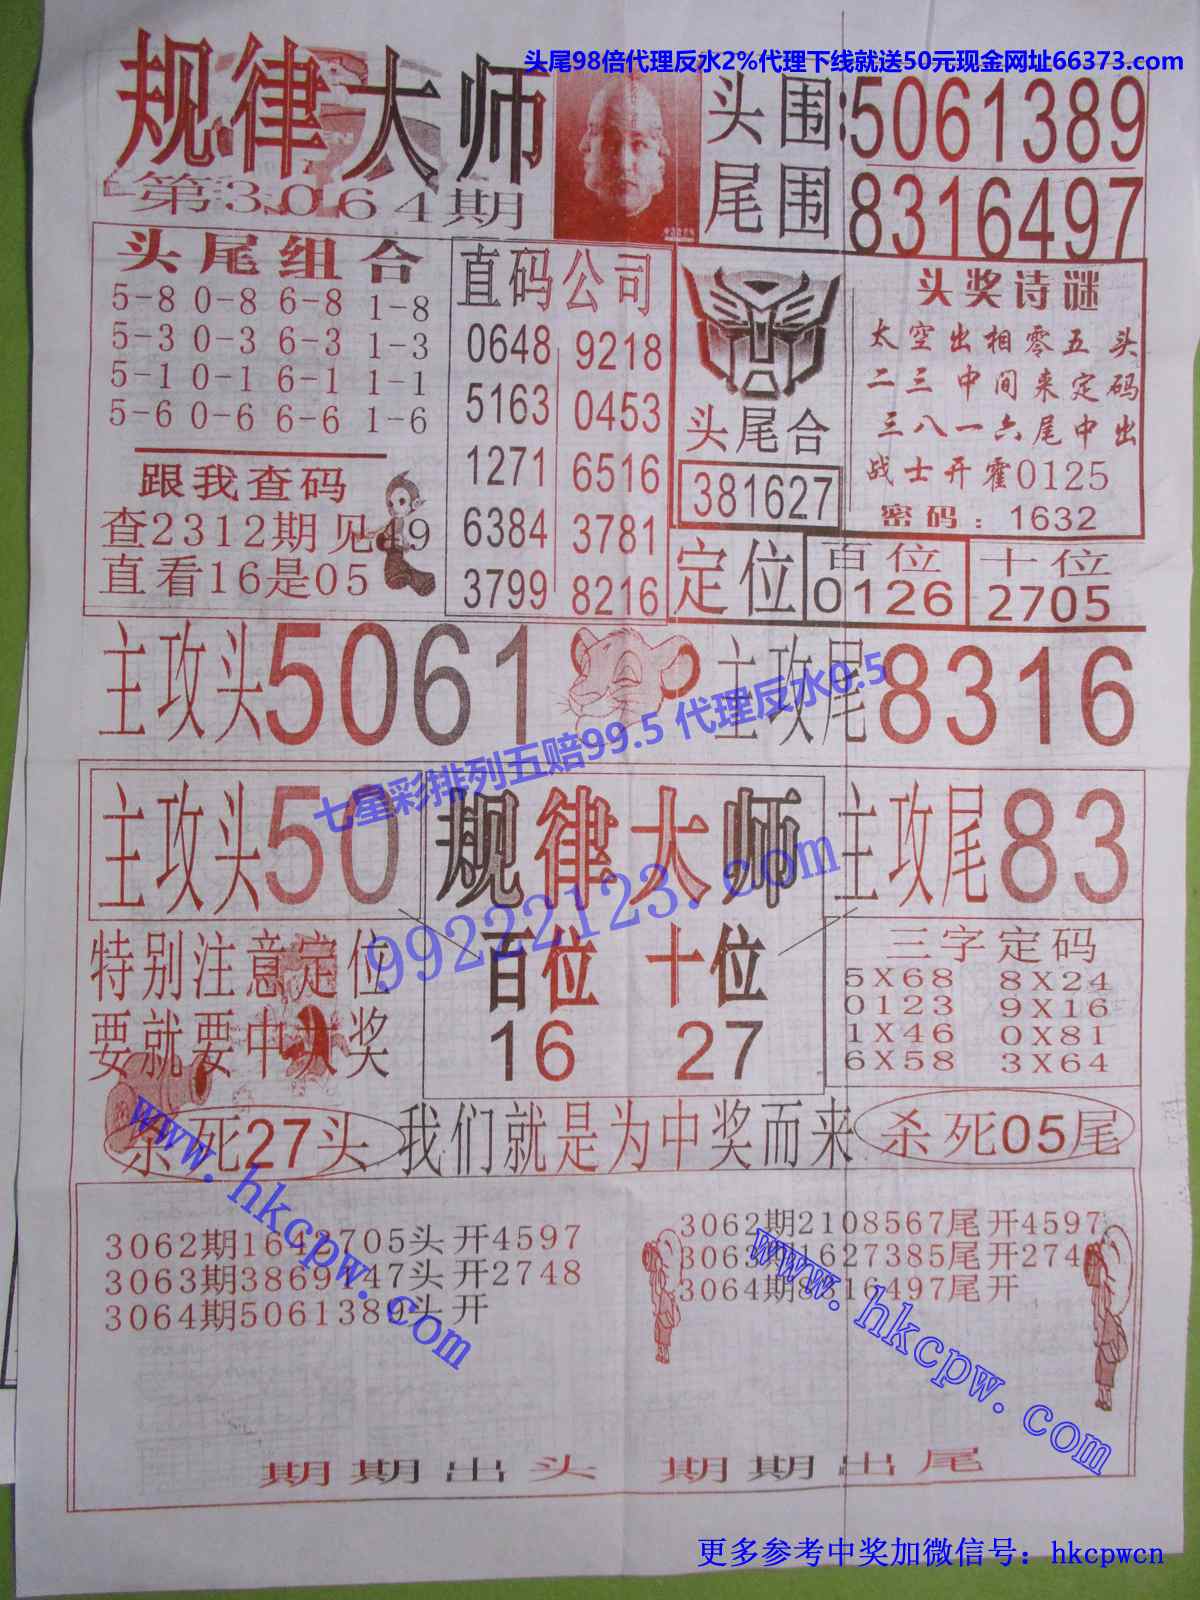 头尾98倍代理反水2%代理下线就送50元现金网址66373.com
规律大师
第3064期
头围:5061389
尾围 8316497
头尾组合
5-8 0-8 6-8 1-8
5-3 0-3 6-3 1-3
5-1 0-1 6-1 1-1
5-6 0-6 6-6 1-6
跟我查码
查2312期见49
直看16是05
直码公司
0648 9218
5163 0453
1271 6516
6384 3781
3799 8216
头尾合
381627
头奖诗谜
太空出相零五头
二三中间来定码
三八一六尾中出
战士开霍0125
密码:1632
定位 百位 十位
0126 2705
主攻头5061 主攻尾8316
七星彩排列五赔99.5 代理反水0.5
主攻头50 规律大师 主攻尾83
99222123.com
特别注意定位
要就要中大奖
百位 十位
16 27
三字定码
5X68 8X24
0123 9X16
1X46 0X81
6X58 3X64
杀死27头 我们就是为中奖而来 杀死05尾
www.hkcpw.com
3062期1642705头开4597
3063期3869147头开2748
3064期5061389头开
3062期2108567尾开4597
3063期1627385尾开2748
3064期8316497尾开
www.hkcpw.com
期期出头 期期出尾
更多参考中奖加微信号：hkcpwcn